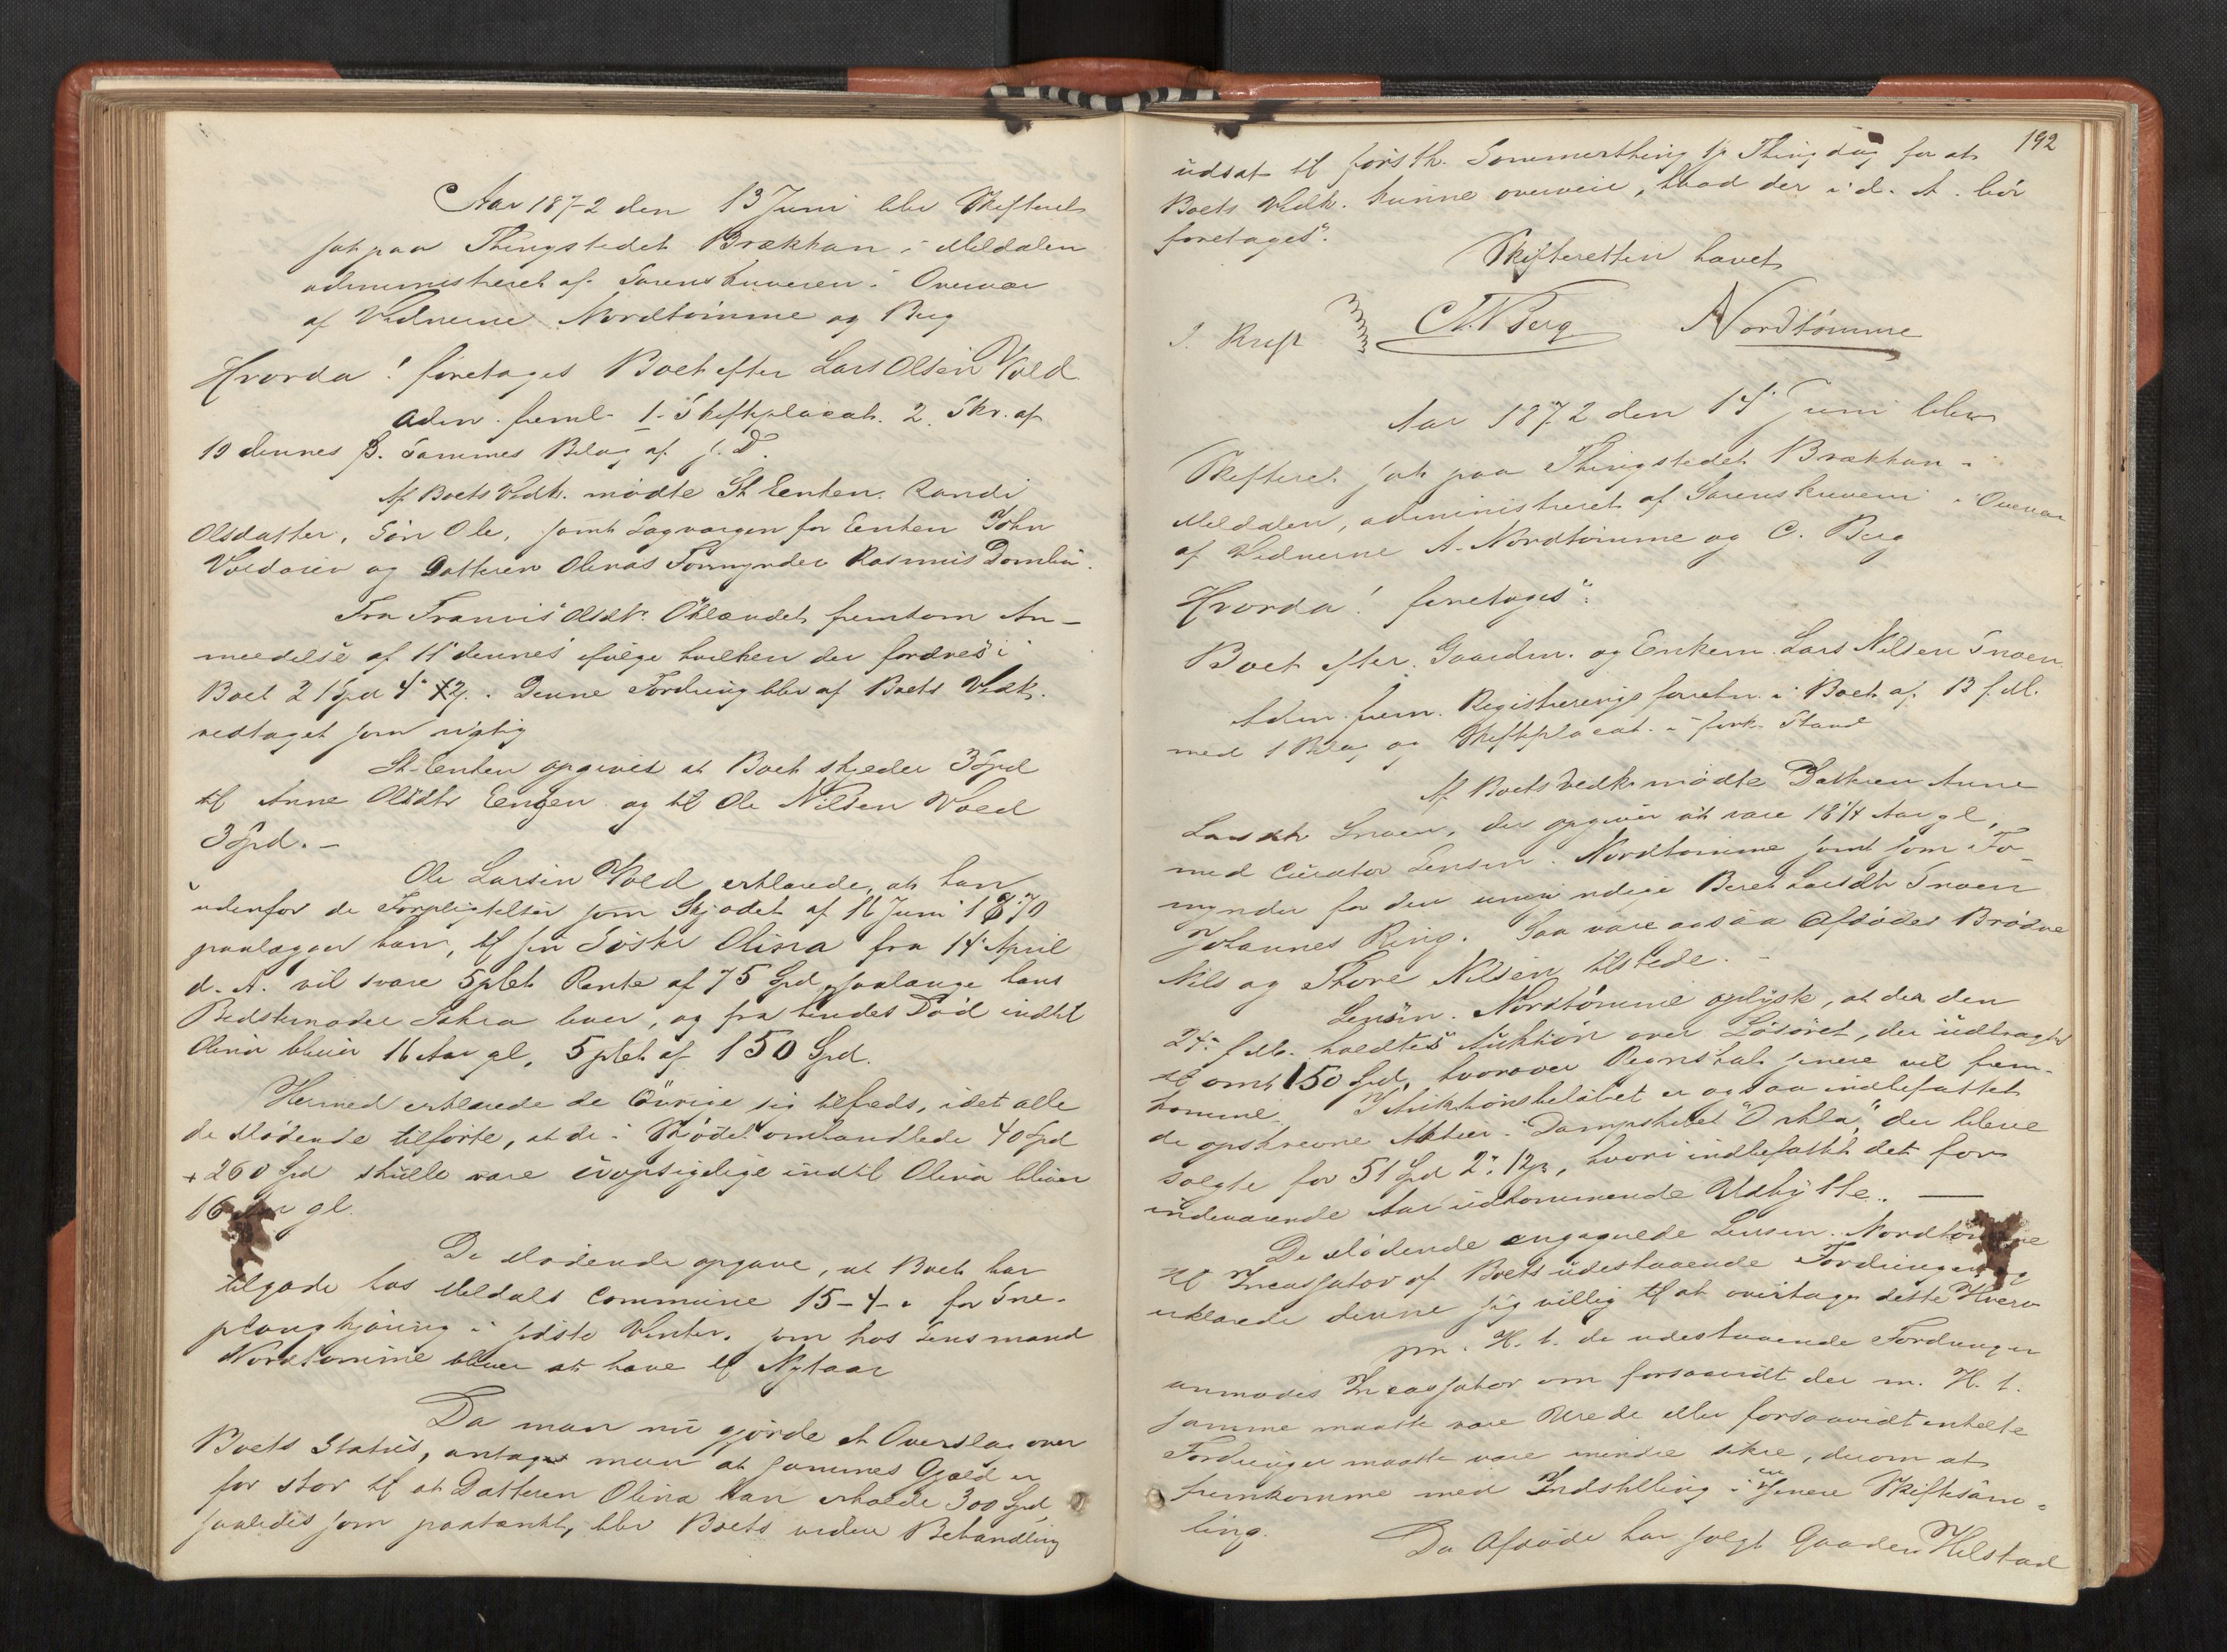 Aar 1872 den 13 Juni blev Skifteret
sat paa Thingstedet Brækkan i Meldalen
administreret af Sorenskriveren i Overvær
af Vidnerne Nordtømme og Berg
Hvorda! foretages Boet efter Lars Olsen Vold
Adm. freml. 1. Skifteplacat. 2. Skr. af
10 dennes 3. Sammes Bilag af s. D.
Af Boets Vedk. mødte St. Enken Randi
Olsdatter, Søn Ole, samt Lagværgen for Enken John
og Datteren Olinas Formynder Rasmus Domli
Fra Olsdtr. fremkom An-
meldelse af 11 dennes ifølge hvilken der fordres i
Boet 21 Spd 4 12 . Denne Fordring blev af Boets Vedk.
vedtaget som rigtig
St. Enken opgiver at Boet skylder 3 Spd
til Anne Olsdtr Eengen og til Ole Nilsen Vold
3 Spd. -
Ole Larsen Vold erklærede, at han
udenfor de Forpligtelser som Skjødet af 16 Juni 1870
paalægger ham, til sin Søster Olina fra 14 April
d. A. vil svare 5 pCt Rente af 75 Spd, saalænge hans
Bedstemoder lever, og fra hendes Død indtil
Olina bliver 16 Aar gl, 5 pCt af 150 Spd.
Hermed erklærede de Øvrige sig tilfreds, idet alle
de Mødende tilførte, at de i Skjødet omhandlede 40 Spd
+ 260 Spd skulle være uopsigelige indtil Olina bliver
16 Aar gl.
De Mødende opgave, at Boet har
tilgode hos Meldals Commune 15-4- " for Sne-
plougkjøring i sidste Vinter, som hos Lensmand
Nordtømme bliver at hæve til Nytaar
Da man nu gjorde et Overslag over
Boets Status, antages man at sammes Gjæld er
for stor til at Datteren Olina kan erholde 300 Spd,
saaledes som paatænkt, blev Boets videre Behandling
192
udsat til førstk. Sommerthing 1ste Thingdag for at
Boets Vedk. kunne overveie, hvad der i d. A. bør
foretages.
Skifteretten hævet
C. N. Berg Nordtømme
Aar 1872 den 14 Juni blev
Skifteret sat paa Thingstedet Brækkan i
Meldalen, administreret af Sorenskriveren i Overvær
af Vidnerne A. Nordtømme og C. Berg
Hvorda! foretages:
Boet efter Gaardm. og Enkem. Lars Nilsen Snoen
Adm. frem. Registreringsforretn. i Boet af 13 f. M.
med 1 Bilag og Skifteplacat i fork. Stand
Af Boets Vedk. mødte Datteren Anne
Larsdtr Snoen, der opgiver at være 18 1/4 Aar gl,
med Curator Lensm. Nordtømme samt som For-
mynder for den umyndige Beret Larsdtr Snoen
Johannes Ring. Saa vare ogsaa Afdødes Brødre
Nils og Thore Nilsen tilstede. -
Lensm. Nordtømme oplyste, at der den
24 f. M. holdtes Auktion over Løsøret, der udbragtes
til omt. 150 Spd, hvorover Regnskab senere vil frem-
komme. I Auktionsbeløbet er ogsaa indbefattet
de opskrevne Aktier i Dampskibet "Orkla", der bleve
solgte for 51 Spd 2 " 12 , hvori indbefattet det for
indeværende Aar udkommende Udbytte. -
De Mødende engagerede Lensm. Nordtømme
til Incassator af Boets udestaaende Fordringer og
erklærede denne sig villig til at overtage dette Hverv
M. H. t. de udestaaende Fordringer
anmodes Incassator om forsaavidt der m. H. t.
samme maatte være eller forsaavidt enkelte
Fordringer maatte være mindre sikre, derom at
fremkomme med Indstilling i en senere Skiftesam-
ling.
Da Afdøde har solgt Gaarden Helstad